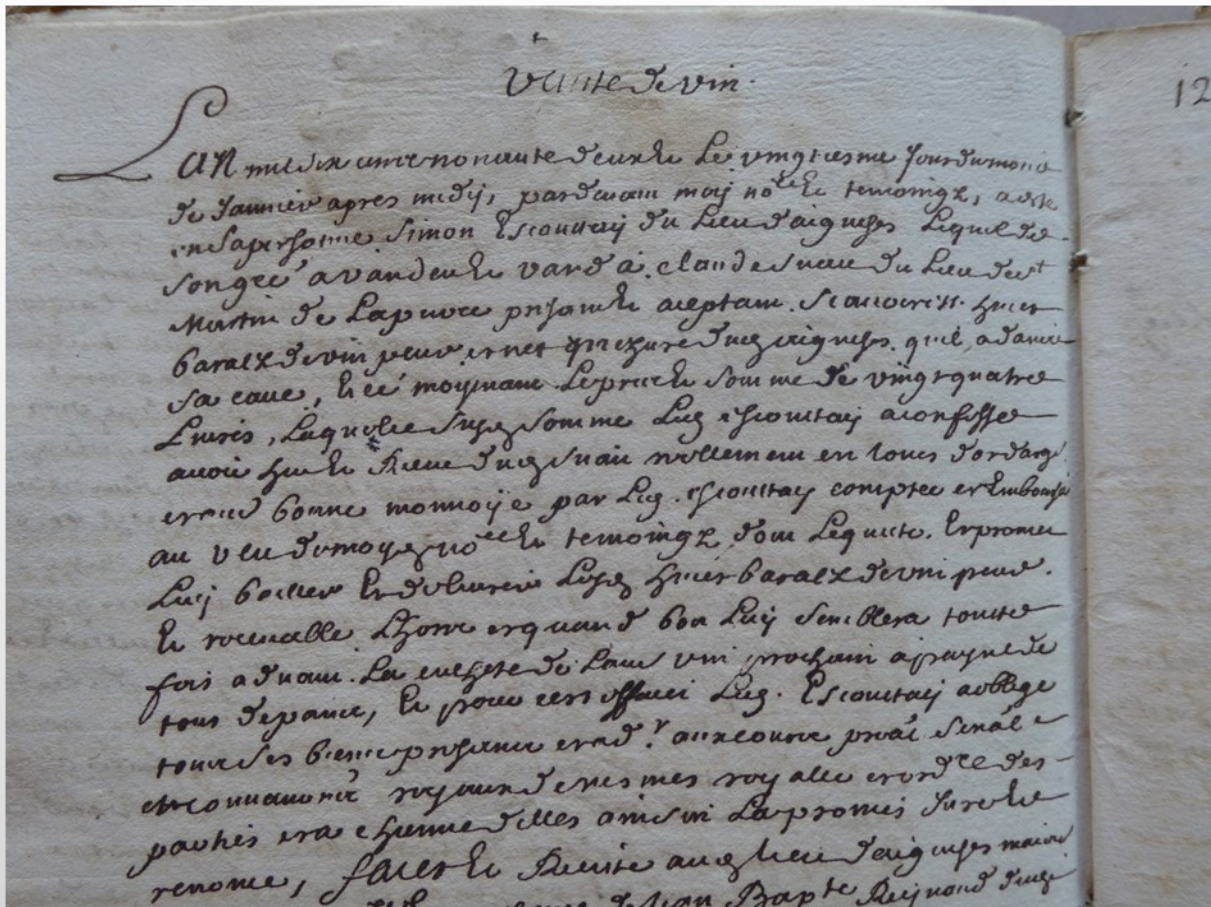 Vante de vin.
12
Lan mil six cens nonante deux et Le vingtiesme Jour du mois
de Janvier apres midy, pardevant moy no.re et temoingz, a esté
en sa personne Simon Escouttay du Lieu daiguezes Lequel de
son gré a vandeu et vand a Claude Suau du Lieu de St
Martin de Lapierre present et aceptant. Scavoir est. huict
baralz de vin peur et net mezure dud aiguezes. quil a dans
sa cave, et ce moyenant Le prix et somme de vingt quatre
Livres, Laquelle susd somme Led escouttay a confessé
avoir heu et Receu dud suau reellement en Louis dor dargt
et aud bonne monnoye par Led. escouttay comptée et Emboursé
au veu de moyd no.re et temoingz dont Lequite. Et promet
Luy bailler Et deLivrer Lesd huict baralz de vin peur.
Et recevable Lhors et quand bon Luy semblera toutte
fois advant. La du vin prochain a payne de
tous depans, Et pour ce Led. Escouttay a oblige
tous ses biens presans et ad.r aux cours
royaux de nismes royalle et ord.re des
parties et a chacune dicelles ainsin La promis Jure et
renoncé, faict et Recité aud Lieu daiguezes maison
de Jean Bap.te Reynaud